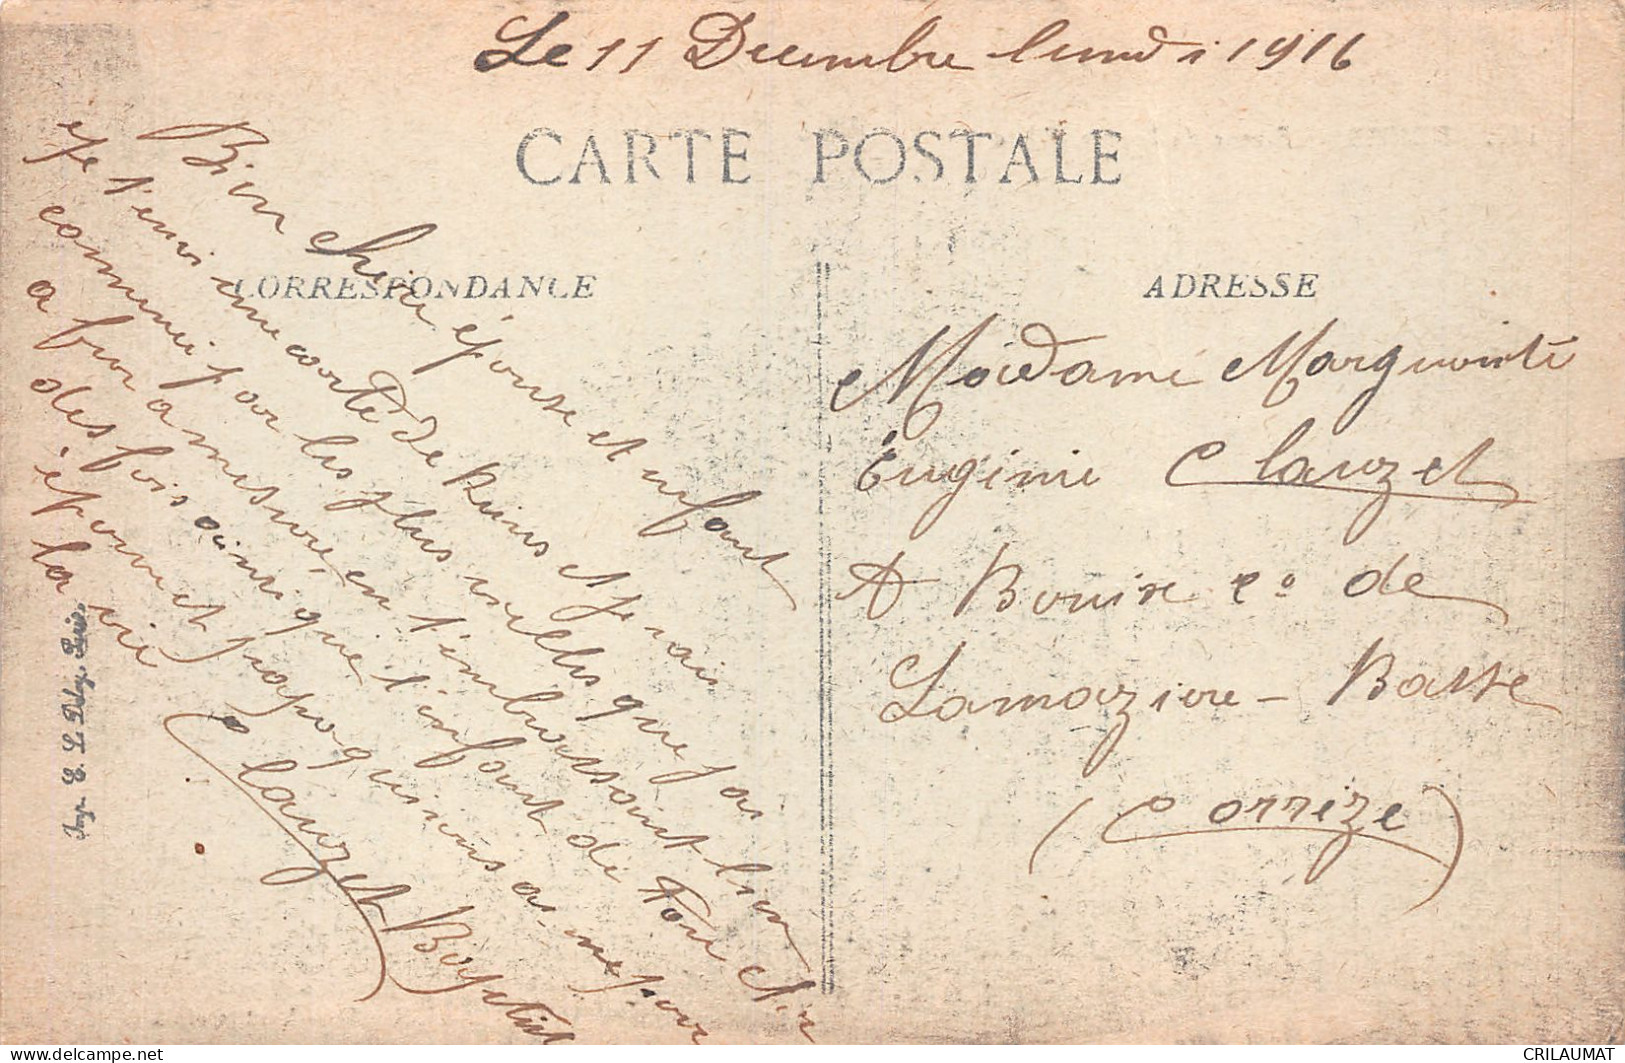 Le 11 Decembre lundi 1916
CARTE POSTALE
CORRESPONDANCE
ADRESSE
Bien cheire épouse et enfant
Je t'envoi une carte de Reims et je vais
commencé par les plus velles que j'ai
a fur a mesure en t'embrassant bien
des fois ainsi que l'enfant di Ton
époux et
la vie
Clauzet Baptist
Madame Marguerite
Eugénie Clauzet
A Bouix Ce de
Lamazière-Basse
(Corrèze)
Imp. E. L. D.
CRILAUMAT